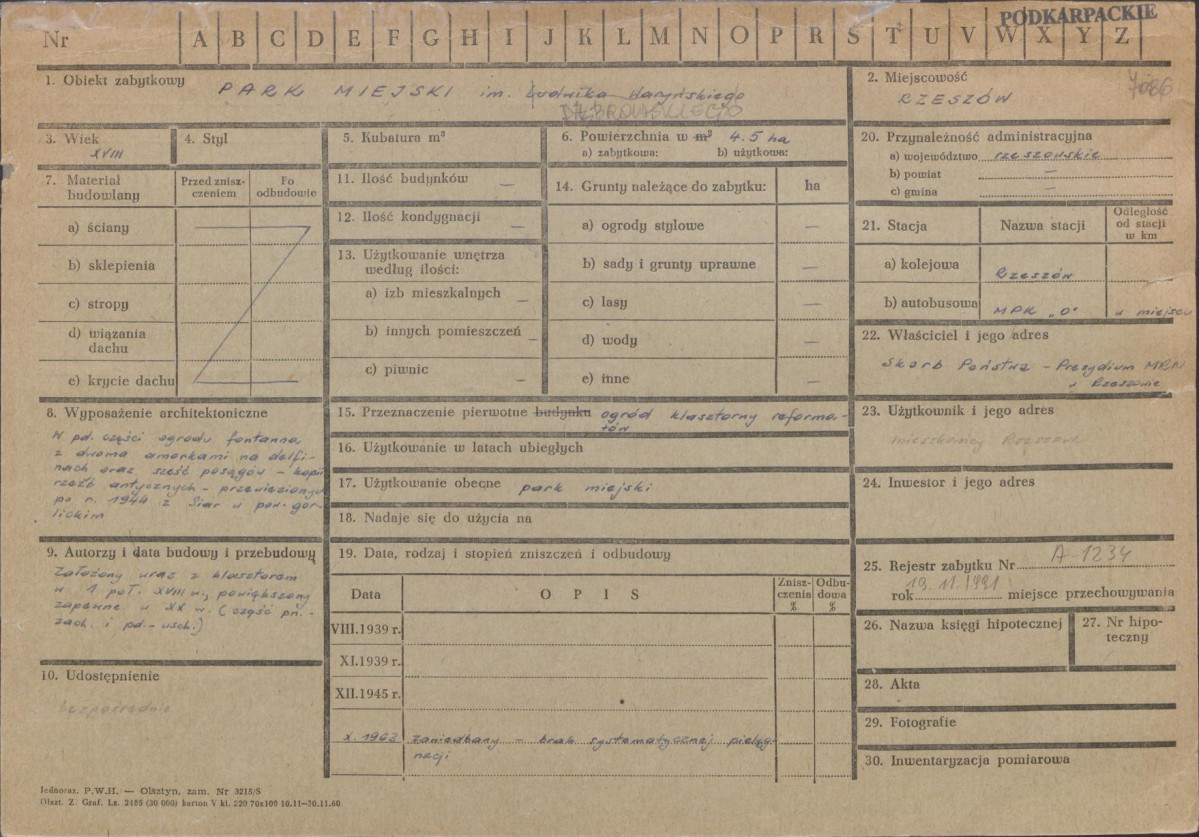 PODKARPACKIE
Nr A B C D E F G H I J K L M N O P R S T U V W X Y Z
1. Obiekt zabytkowy PARK MIEJSKI im. Ludwika Waryńskiego
DĄBROWSKIEGO
2. Miejscowość
RZESZÓW
3. Wiek
XVIII
4. Styl
5. Kubatura m³
6. Powierzchnia w m³ 4.5 ha
a) zabytkowa: b) użytkowa:
7. Materiał budowlany
Przed zniszczeniem
Po odbudowie
a) ściany
b) sklepienia
c) stropy
d) wiązania dachu
e) krycie dachu
11. Ilość budynków —
12. Ilość kondygnacji —
13. Użytkowanie wnętrza
według ilości:
a) izb mieszkalnych —
b) innych pomieszczeń —
c) piwnic —
14. Grunty należące do zabytku: ha
a) ogrody stylowe —
b) sady i grunty uprawne —
c) lasy —
d) wody —
e) inne —
20. Przynależność administracyjna
a) województwo rzeszowskie
b) powiat —
c) gmina —
21. Stacja Nazwa stacji Odległość od stacji w km
a) kolejowa Rzeszów
b) autobusowa MPK „O" w miejscu
22. Właściciel i jego adres
Skarb Państwa – Prezydium MRN
w Rzeszowie
8. Wyposażenie architektoniczne
W pd. części ogrodu fontanna
z dwoma amorkami na delfi-
nach oraz sześć posągów – kopii
rzeźb antycznych – przewiezionych
po r. 1944 z Siar w pow. gor-
lickim
15. Przeznaczenie pierwotne budynku ogród klasztorny reforma-
tów
16. Użytkowanie w latach ubiegłych
17. Użytkowanie obecne park miejski
18. Nadaje się do użycia na
23. Użytkownik i jego adres
mieszkańcy Rzeszowa
24. Inwestor i jego adres
9. Autorzy i data budowy i przebudowy
Założony wraz z klasztorem
w 1 poł. XVIII w., powiększony
zapewne w XX w. (część pn.-
zach. i pd.-wsch.)
19. Data, rodzaj i stopień zniszczeń i odbudowy
Data OPIS Zniszczenia % Odbudowa %
VIII.1939 r.
XI.1939 r.
XII.1945 r.
X. 1963 zaniedbany – brak systematycznej pielęg-
nacji
25. Rejestr zabytku Nr A-1234
rok 19.11.1991 miejsce przechowywania
26. Nazwa księgi hipotecznej
27. Nr hipoteczny
10. Udostępnienie
bezpośrednie
28. Akta
29. Fotografie
30. Inwentaryzacja pomiarowa
Jednoraz. P.W.H. — Olsztyn, zam. Nr 3215/S
Olszt. Z. Graf. Lz. 2485 (30 000) karton V kl. 220 70x100 10.11—30.11.60